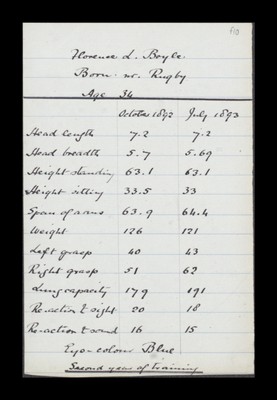 Florence L. Boyle.
Born. nr. Rugby
Age 34
October 1892 July 1893
Head length 7.2 7.2
Head breadth 5.7 5.69
Height standing 63.1 63.1
Height sitting 33.5 33
Span of arms 63.9 64.4
Weight 126 121
Left grasp 40 43
Right grasp 51 62
Lung capacity 179 191
Re-action to sight 20 18
Re-action to sound 16 15
Eye-colour Blue
Second year of training